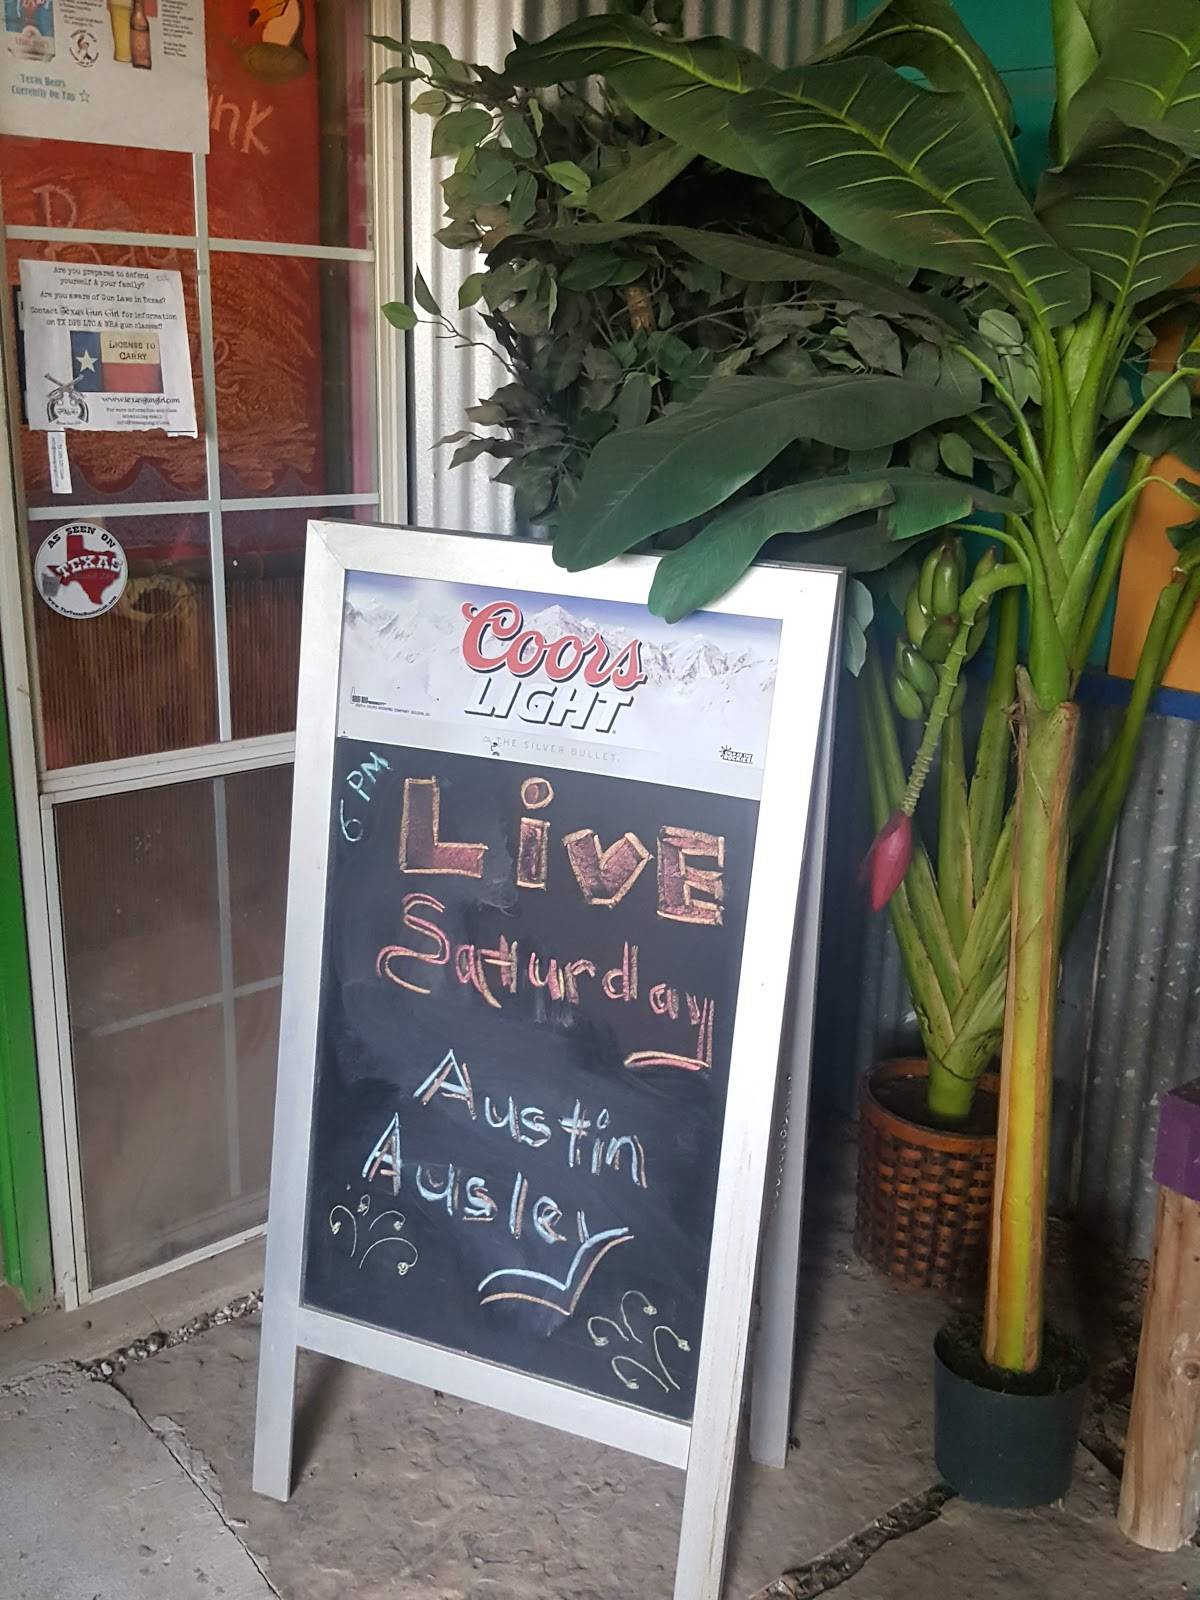 Texas Beers
Currently On Tap
Are you prepared to defend
yourself & your family?
Are you aware of Gun Laws in Texas?
Contact Texas Gun Girl for information
on TX DPS LTC & NRA gun classes!!
LICENSE TO
CARRY
www.texasgungirl.com
For more information and class
scheduling email:
info@texasgungirl.com
AS SEEN ON
TEXAS
Coors
LIGHT
THE SILVER BULLET.
6 PM
LivE
Saturday
Austin
Ausley